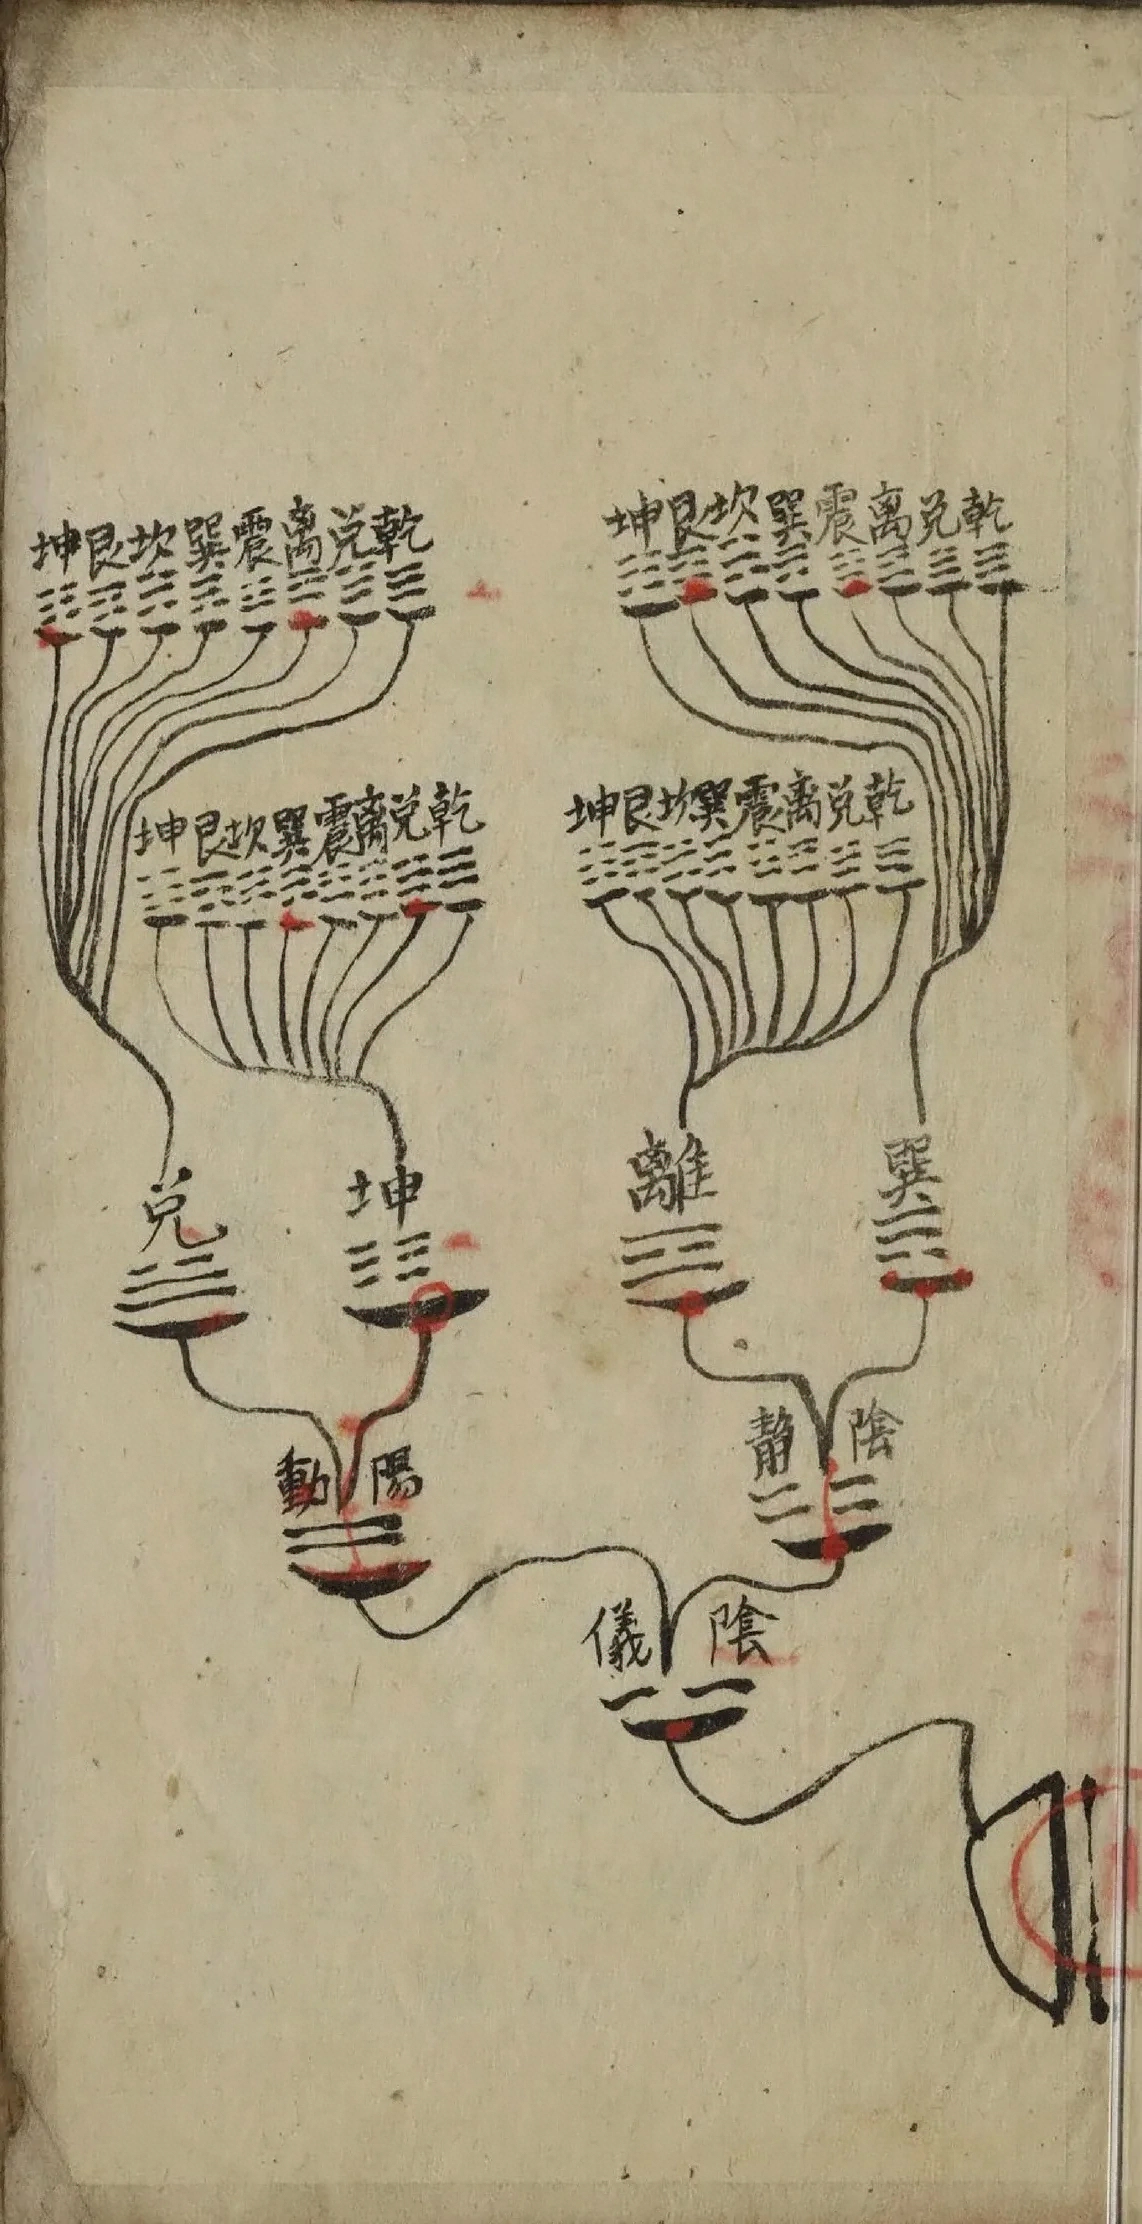 坤艮坎巽震离兌乾
坤艮坎巽震离兌乾
坤艮坎巽震离兌乾
坤艮坎巽震离兌乾
兌
坤
離
巽
動陽
靜陰
儀陰